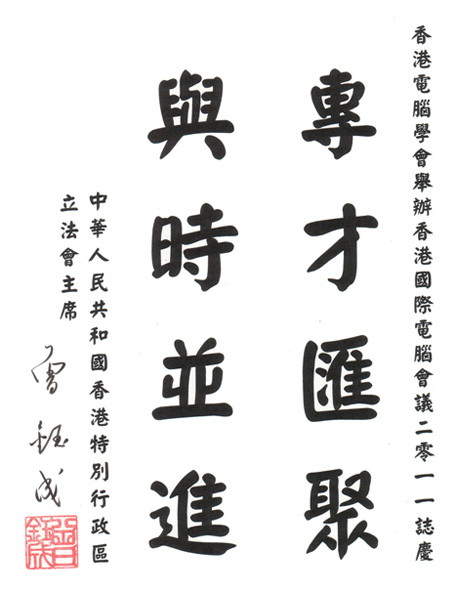 香港電腦學會舉辦香港國際電腦會議二零一一誌慶
專才匯聚
與時並進
中華人民共和國香港特別行政區
立法會主席
曾鈺成
曾鈺成